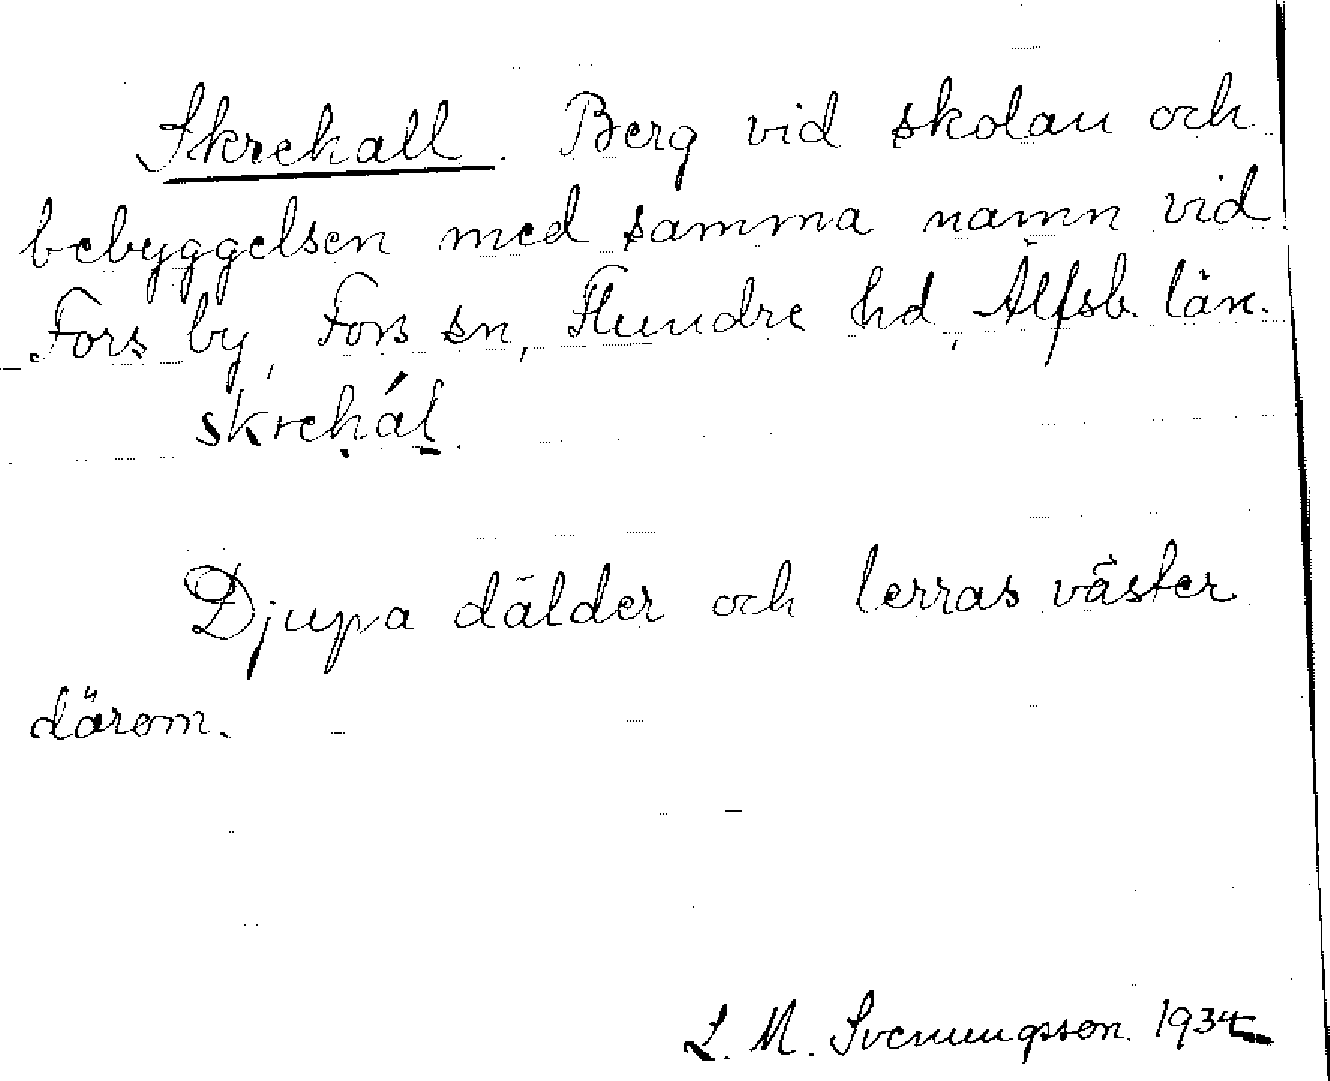 Skrehall. Berg vid skolan och
bebyggelsen med samma namn vid
Fors by, Fors sn, Flundre hd, Älfsb. län.
skrehál.
Djupa dälder och lerras väster
därom.
L. M. Svenungsson 1934